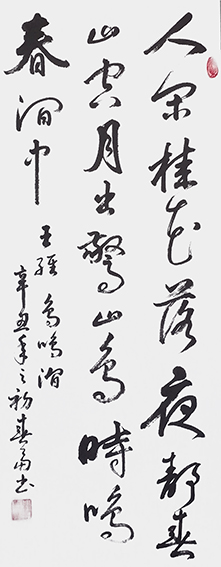 人闲桂花落夜静春
山空月出惊山鸟时鸣
春涧中
王维鸟鸣涧
辛丑年之初春 书